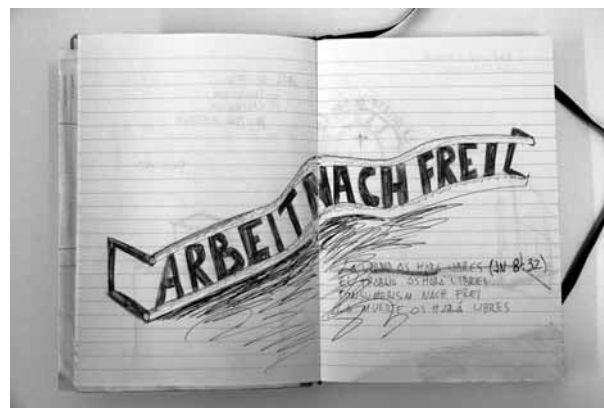 ARBEIT NACH FREI
OS HARÁ LIBRES (JN 8:32)
EL TRABAJO OS HARÁ LIBRES
NACH FREI
LA MUERTE OS HARÁ LIBRES